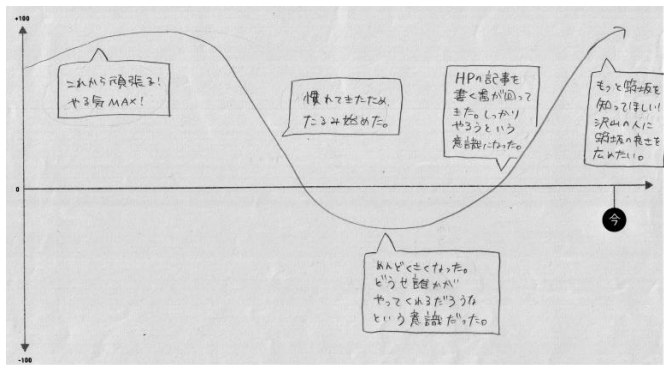 +100
これから頑張る!
やる気MAX!
慣れてきたため、
たるみ始めた。
HPの記事を
書く番が回って
きた。しっかり
やろうという
意識になった。
もっと
知ってほしい!
沢山の人に
の良さを
広めたい。
0
今
めんどくさくなった。
どうせ誰かが
やってくれるだろうな
という意識だった。
-100